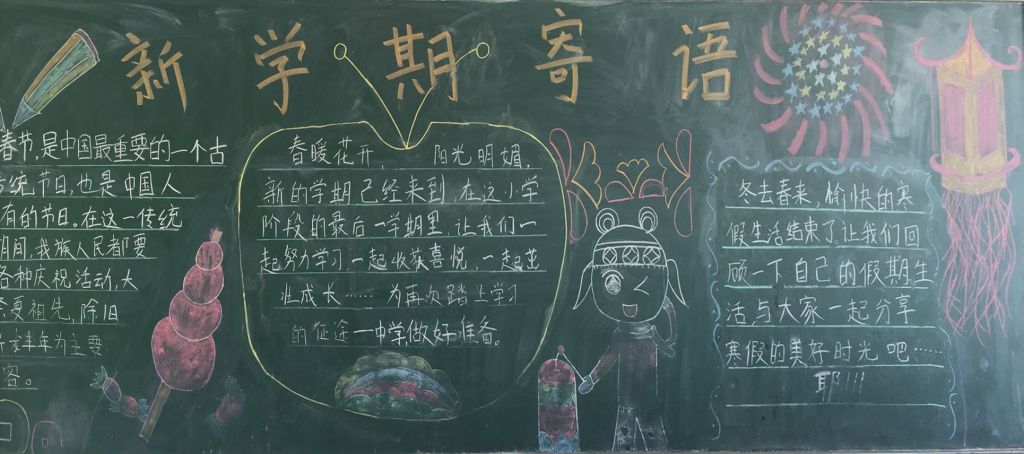 新学期寄语
春节,是中国最重要的一个古
统节日,也是中国人
有的节日。在这一传统
期间,我族人民都要
各种庆祝活动,大
祭祖先,除旧
丰年为主要
容。
春暖花开, 阳光明媚,
新的学期已经来到,在这小学
阶段的最后一学期里,让我们一
起努力学习,一起收获喜悦,一起茁
壮成长……为再次踏上学习
的征途一中学做好准备。
冬去春来,愉快的寒
假生活结束了让我们回
顾一下自己的假期生
活,与大家一起分享
寒假的美好时光吧……
耶!!!